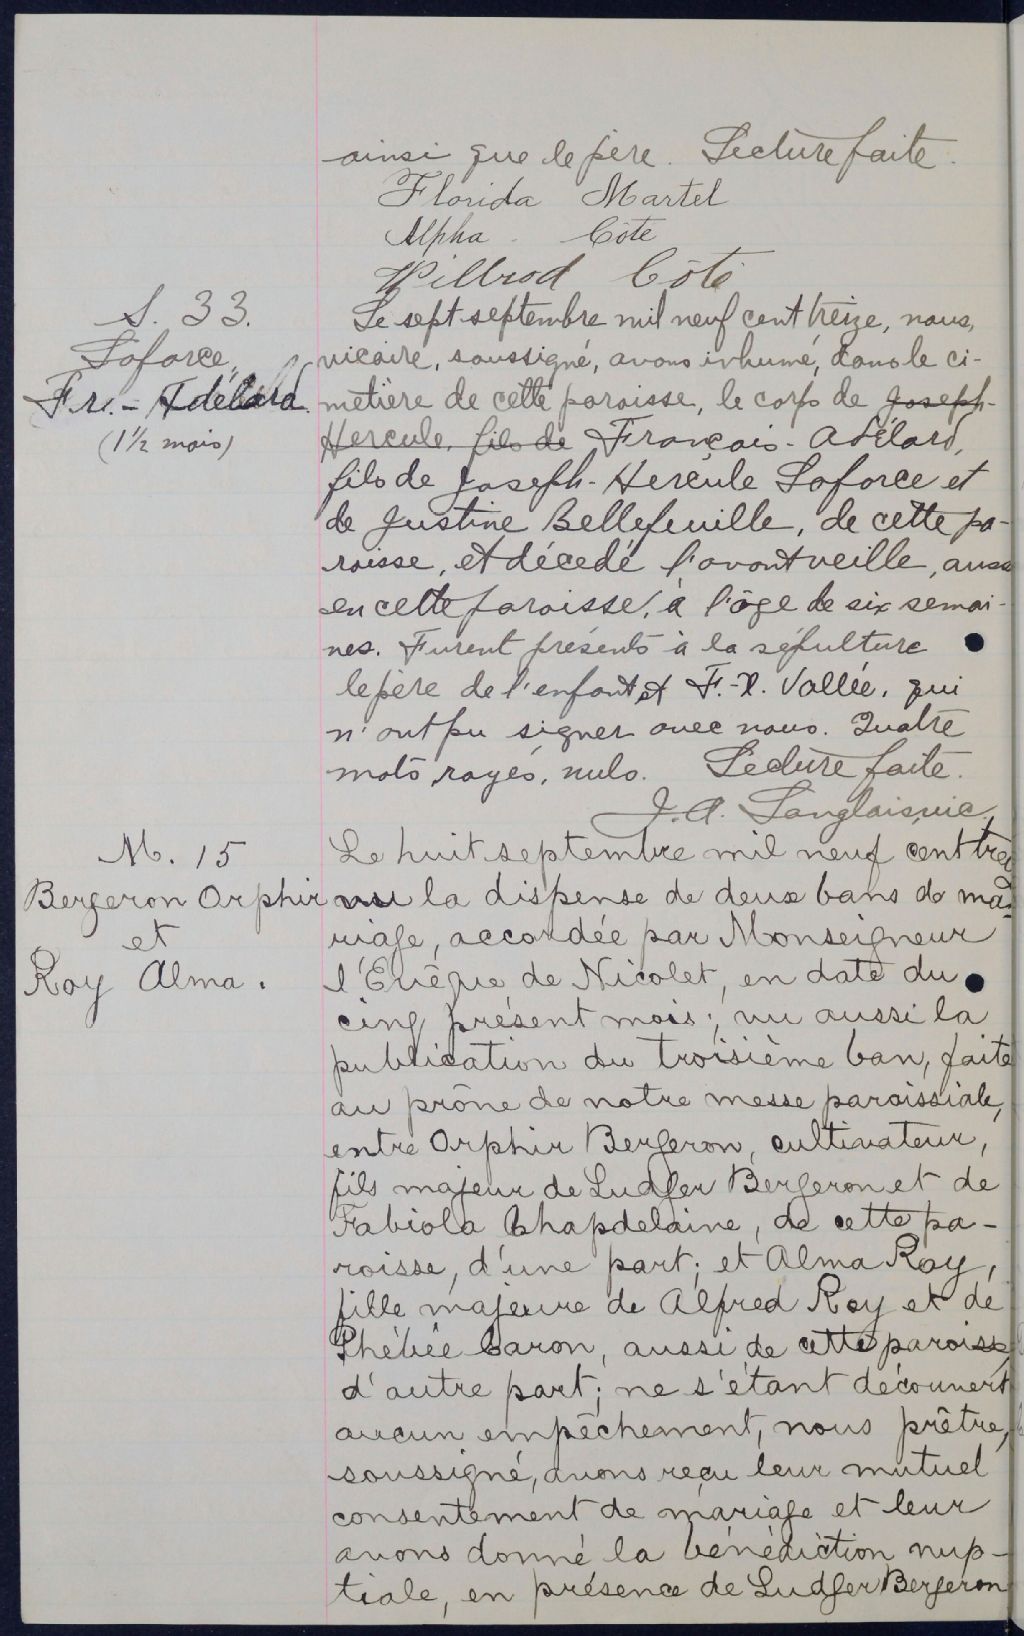 ainsi que le père. Lecture faite.
Florida Martel
Alpha Côté
Willrod Côté
S. 33.
Laforce,
Fr.-Adélard
(1½ mois)
Le sept septembre mil neuf cent treize, nous,
vicaire, soussigné, avons inhumé, dans le ci-
metière de cette paroisse, le corps de Joseph-
Hercule, fils de François-Adélard,
fils de Joseph-Hercule Laforce et
de Justine Bellefeuille, de cette pa-
roisse, et décédé l'avant veille, auss
en cette paroisse, à l'âge de six semai-
nes. Furent présents à la sépulture
le père de l'enfant et F.-X. Vallée, qui
n'ont pu signer avec nous. Quatre
mots rayés, nuls. Lecture faite.
J. A. Langlais vic.
M. 15
Bergeron Orphir
et
Roy Alma.
Le huit septembre mil neuf cent trei
vu la dispense de deux bans de ma-
riage, accordée par Monseigneur
l'Evêque de Nicolet, en date du
cinq présent mois; vu aussi la
publication du troisième ban, faite
au prône de notre messe paroissiale,
entre Orphir Bergeron, cultivateur,
fils majeur de Ludger Bergeron et de
Fabiola Chapdelaine, de cette pa-
roisse, d'une part; et Alma Roy,
fille majeure de Alfred Roy et de
Phébée Caron, aussi de cette paroisse,
d'autre part; ne s'étant découvert
aucun empêchement, nous prêtre,
soussigné, avons reçu leur mutuel
consentement de mariage et leur
avons donné la bénédiction nup-
tiale, en présence de Ludger Bergeron